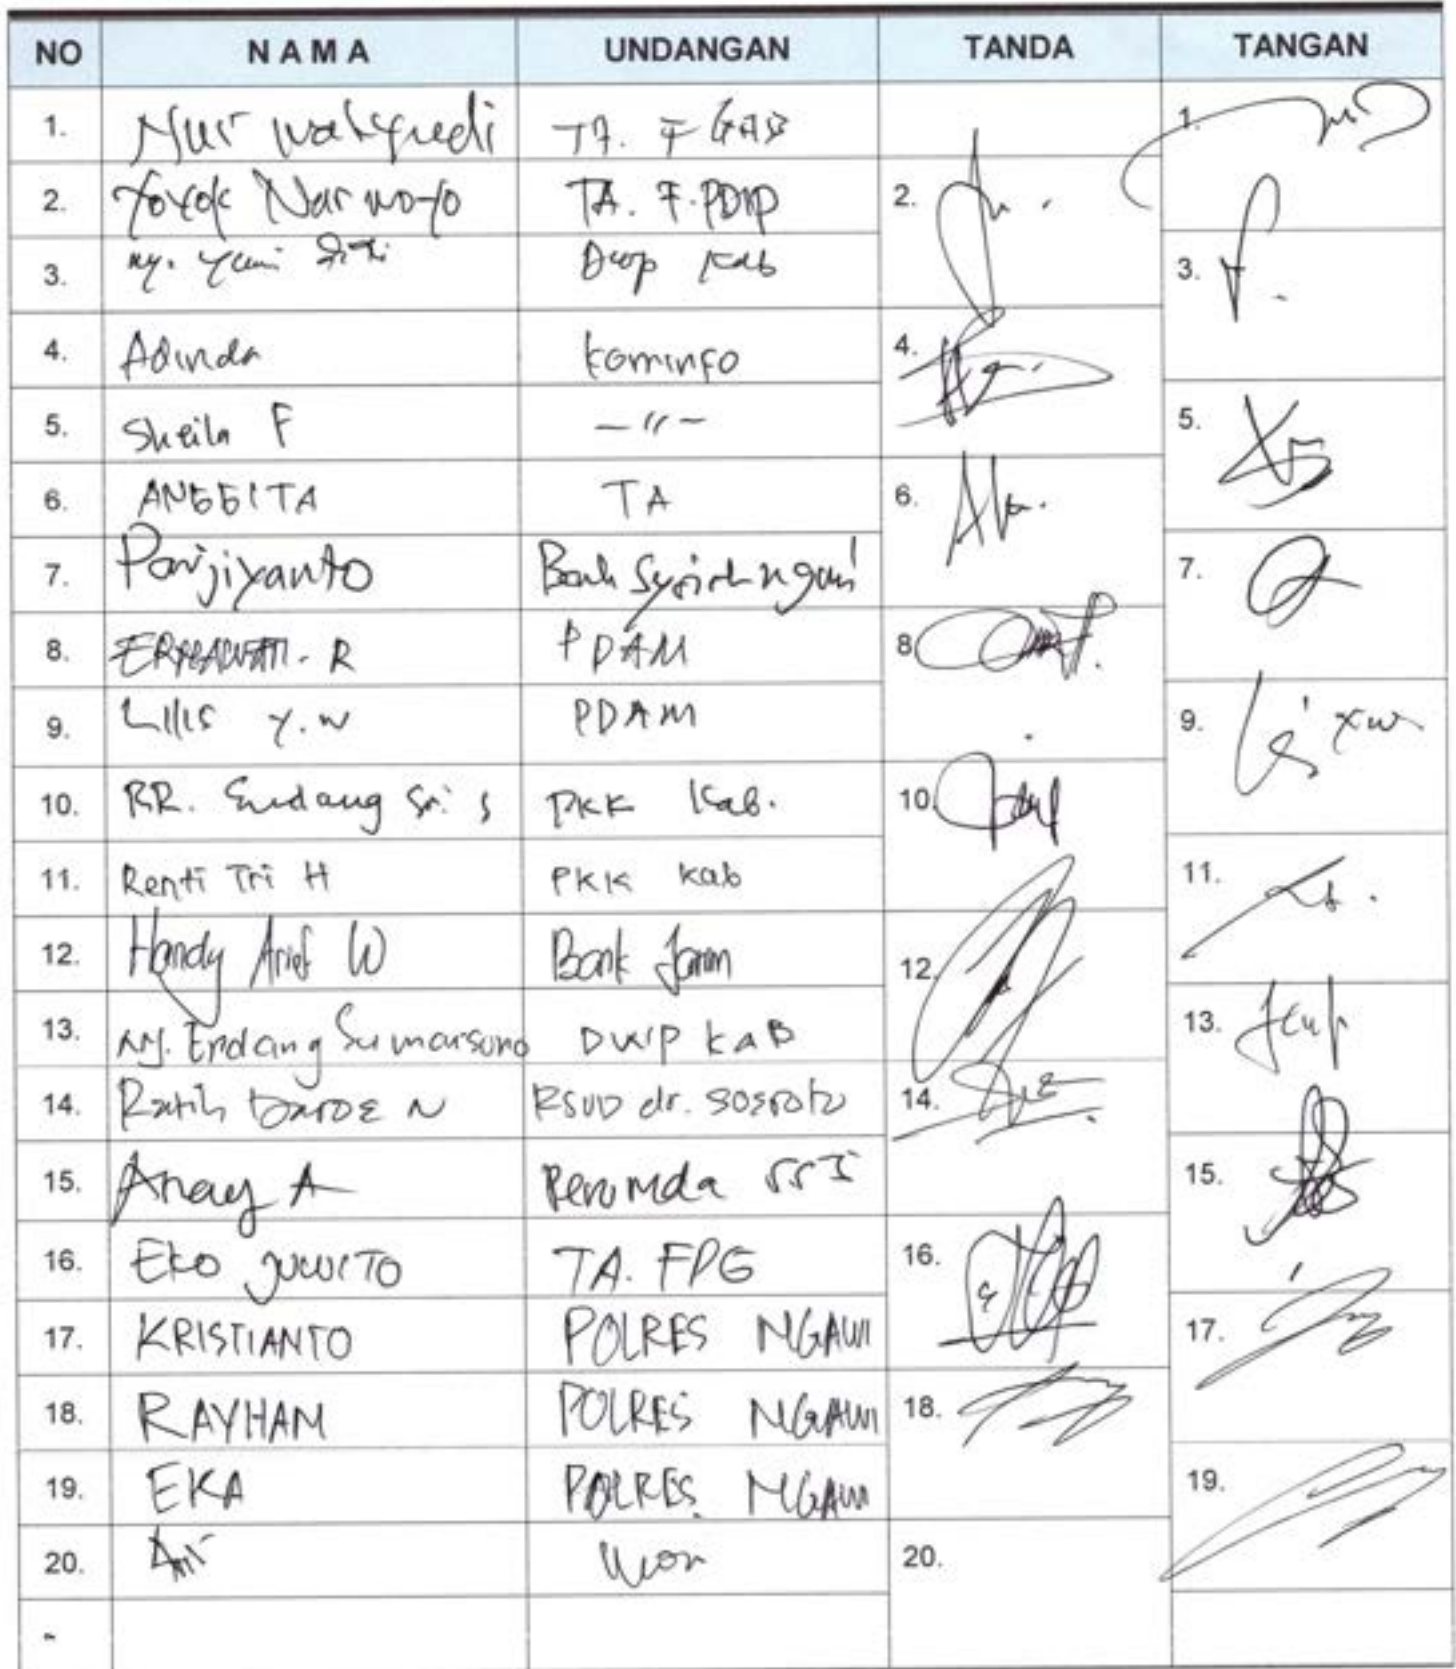 NO NAMA UNDANGAN TANDA TANGAN
1. Nur wahyudi TA. F GAB 1.
2. Yoyok Narwoyo TA. F. PDIP 2.
3. Ny. Yuni Kab 3.
4. Adinda Kominfo 4.
5. Sheila F -〃- 5.
6. ANGGITA TA 6.
7. Parjiyanto Bank Syariah Ngawi 7.
8. R PDAM 8
9. Lilis Y.W PDAM 9.
10. RR. Endang Sri S PKK Kab. 10.
11. Renti Tri H PKK Kab 11.
12. Handy Arief W Bank Jatim 12.
13. Ny. Endang Sumarsono DWP KAB 13.
14. Ratih N RSUD dr. Soeroto 14.
15. A Perumda 15.
16. EKO JUWITO TA. FPG 16.
17. KRISTIANTO POLRES NGAWI 17.
18. RAYHAM POLRES NGAWI 18.
19. EKA POLRES NGAWI 19.
20. 20.